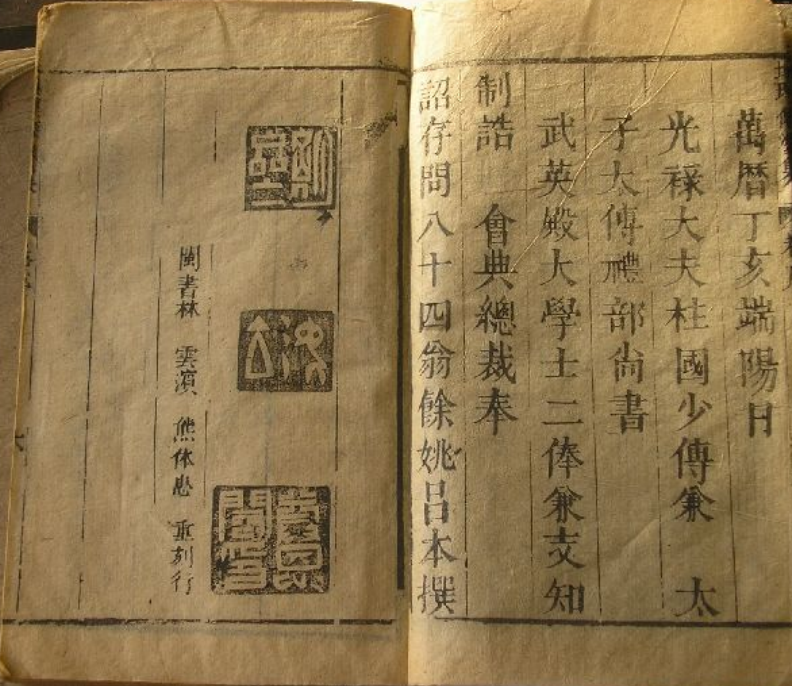 萬暦丁亥端陽日
光祿大夫柱國少傅兼 太
子太傅禮部尚書
武英殿大學士二俸兼支知
制誥 會典總裁奉
詔存問八十四翁餘姚呂本撰
閩書林 雲濱 熊体忠 重刻行